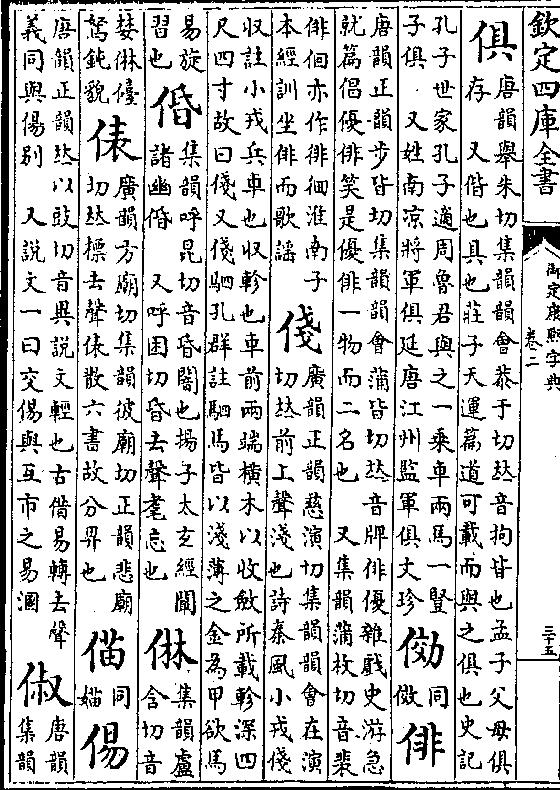 欽定四庫全書
御定康熙字典
卷二
三十五
俱
唐韻舉朱切集韻韻會恭于切𠀤音拘皆也孟子父母俱
存 又偕也具也莊子天運篇道可載而與之俱也史記
孔子世家孔子適周魯君與之一乗車兩馬一豎
子俱 又姓南凉將軍俱延唐江州監軍俱文珍
㑃
同
傚
俳
唐韻正韻步皆切集韻韻會蒲皆切𠀤音牌俳優雜戲史游急
就篇倡優俳笑是優俳一物而二名也 又集韻蒲枚切音裴
俳佪亦作徘徊淮南子
本經訓坐俳而歌謡
俴
廣韻正韻慈演切集韻韻會在演
切𠀤前上聲淺也詩秦風小戎俴
收註小戎兵車也收軫也車前兩端横木以收斂所載軫深四
尺四寸故曰俴又俴駟孔羣註駟馬皆以淺薄之金為甲欲馬
易旋
習也
㑉
集韻呼昆切音昏闇也揚子太玄經闚
諸幽㑉 又呼困切昏去聲耄忘也
㑣
集韻盧
含切音
婪㑣儓
駑鈍貌
俵
廣韻方廟切集韻彼廟切正韻悲廟
切𠀤標去聲俵散六書故分畀也
㑤
同
媌
㑥
唐韻正韻𠀤以豉切音異説文輕也古借易轉去聲
義同與傷别 又説文一曰交㑥與互市之易溷
俶
唐韻
集韻